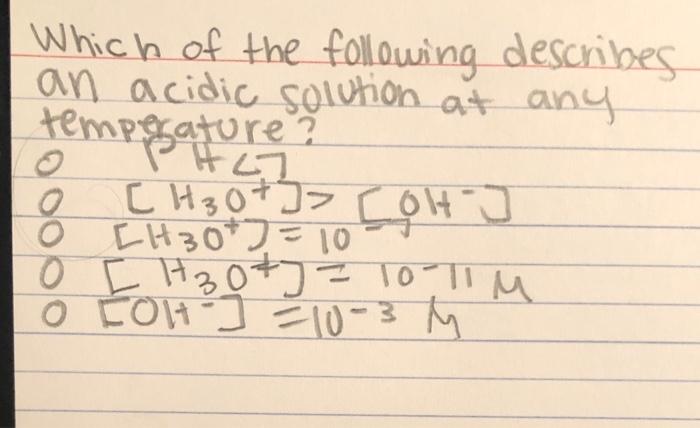 Which of the following describes
an acidic solution at any
temperature?
O PH<7
O [H3O+]> [OH-]
O [H3O+]= 10-7
O [H3O+] = 10-11 M
O [OH-] =10-3 M